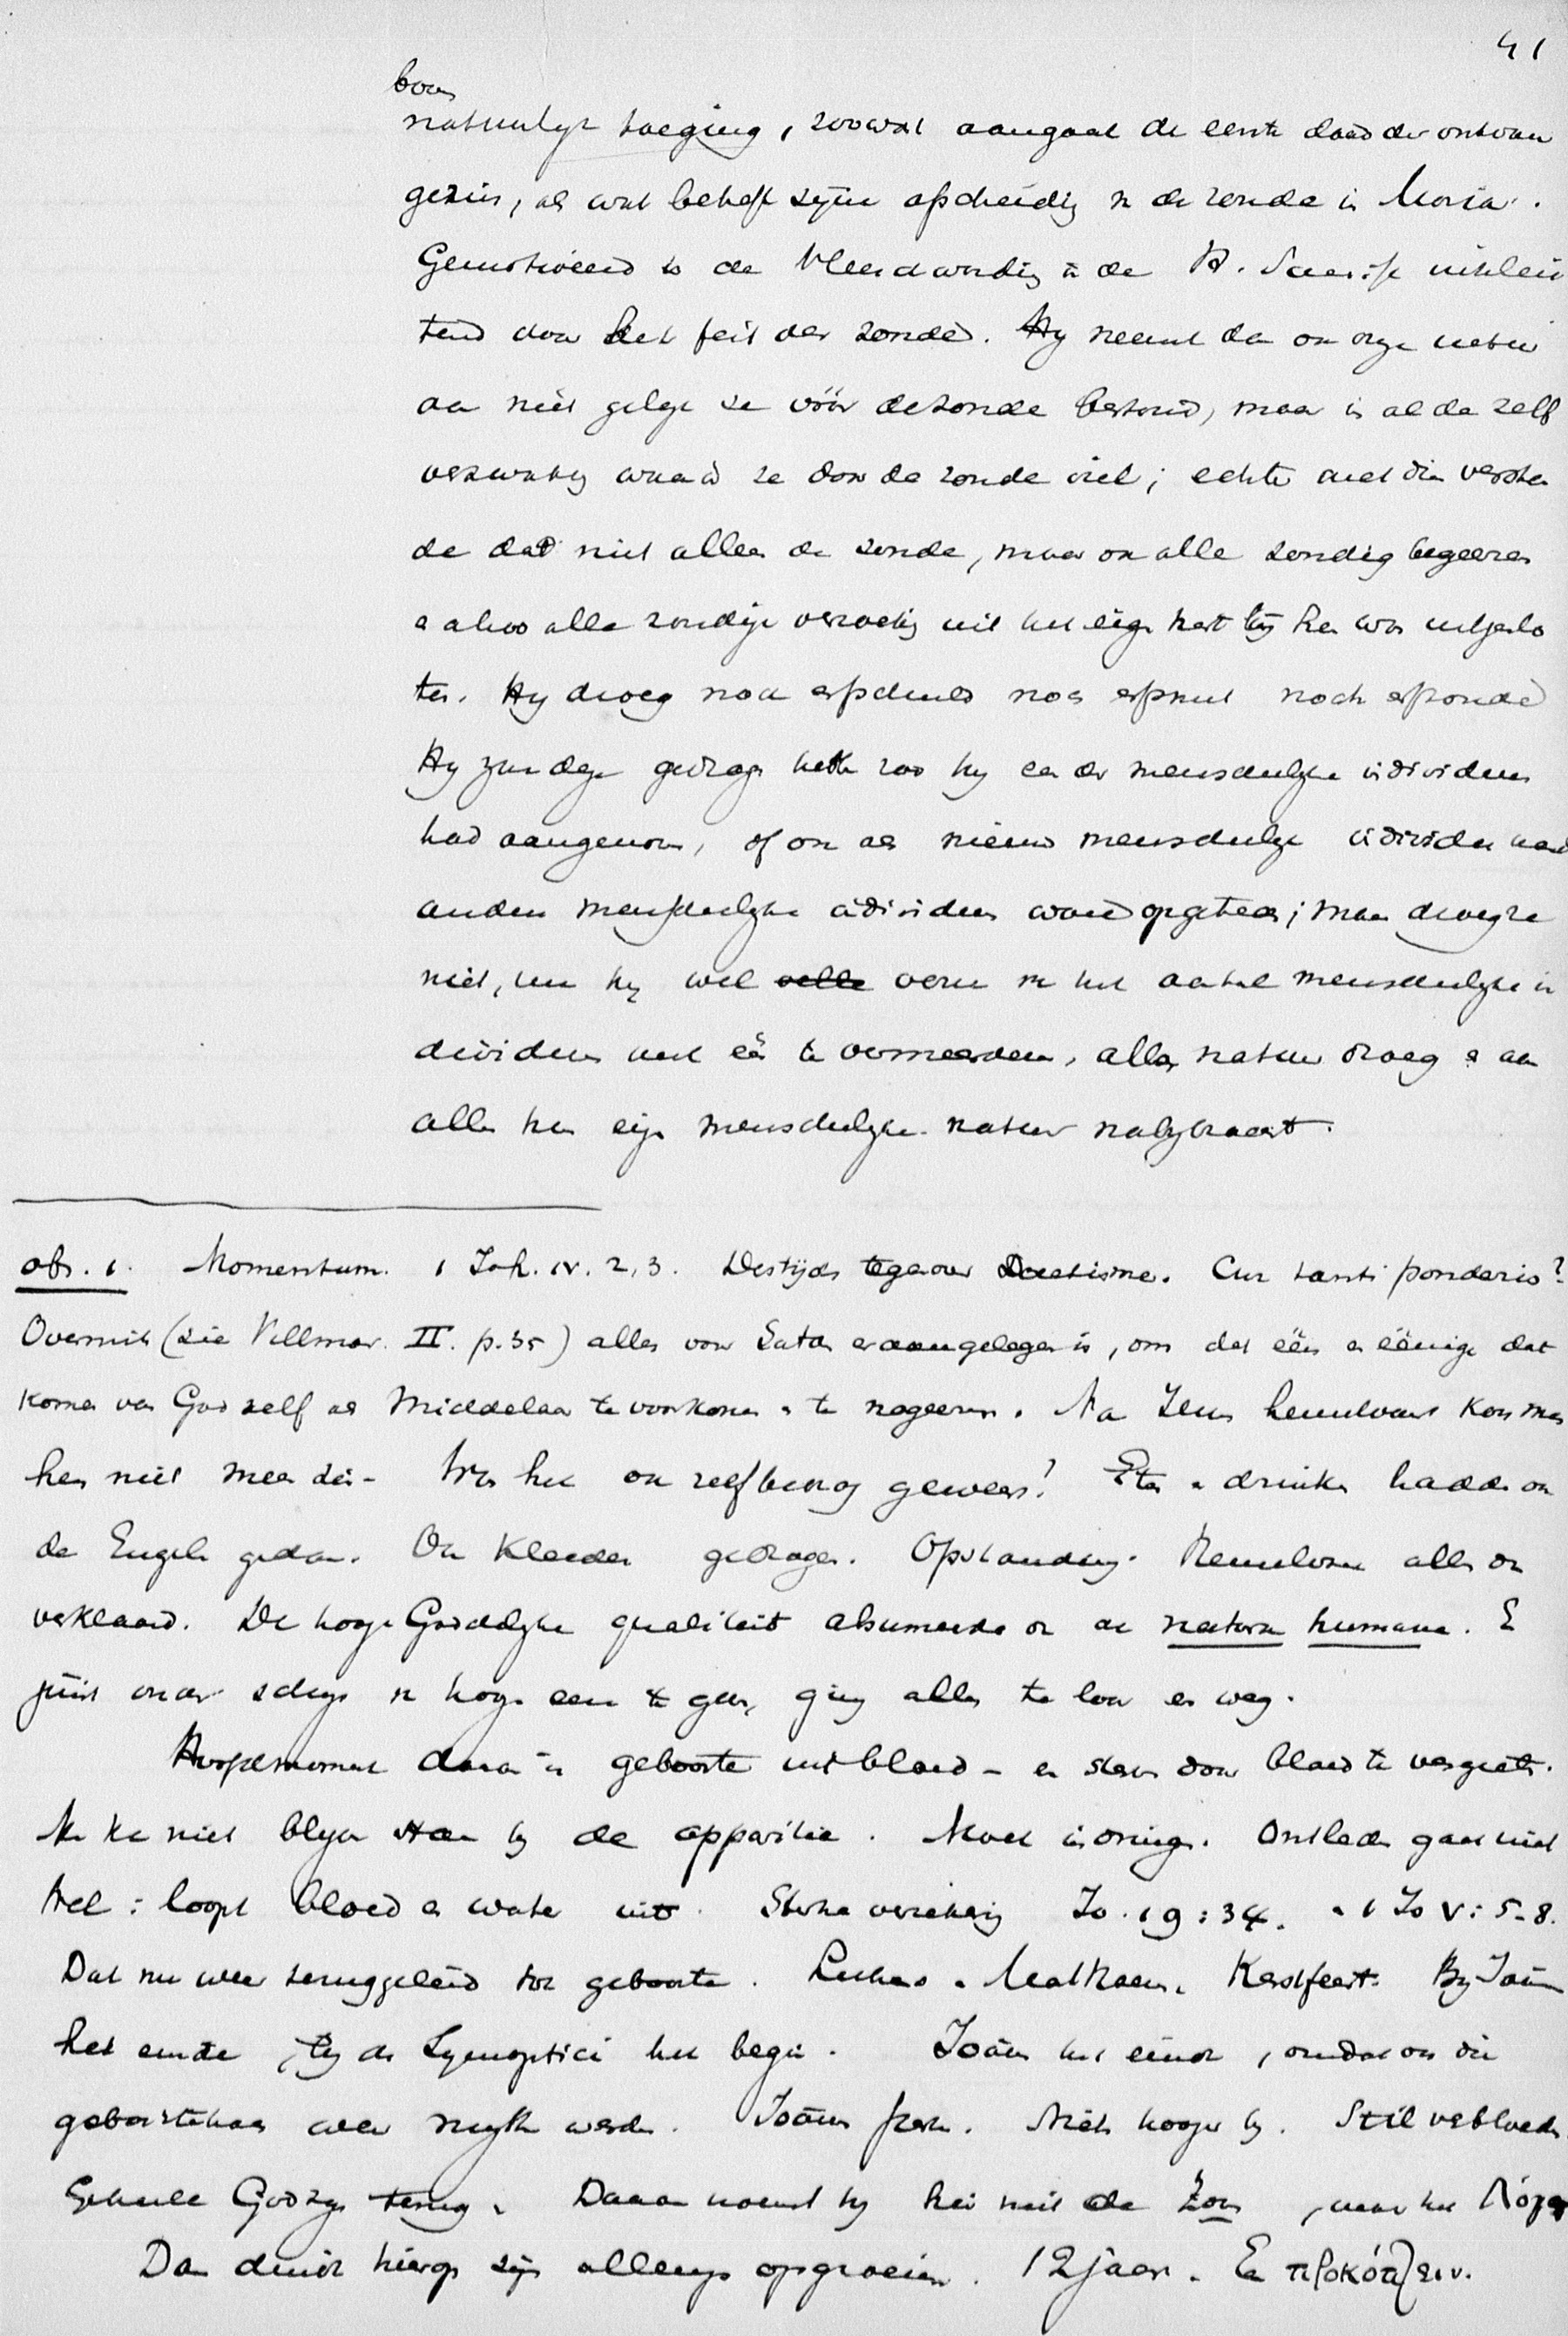 41
boven
natuurlyk toeging, zoowat aangaat de eerste daad der ontvan
genis, als wat betreft zyne afscheiding v de zonde in Maria.
Gemotiveerd is de Vleeschwording in de H. Schrift uitslui
tend door het feit der zonde. Hy neemt dan ook onze natuur
aan niet gelyk ze vóór de zonde bestond, maar in al de zelf
verzwakking waarin ze door de zonde viel; echter met dien verstan
de dat niet alleen de zonde, maar ook alle zondig begeeren
en alzoo alle zondige verzoeking uit het eigen hart by hem was uitgeslo
ten. Hy droeg noch erfschuld noch erfsmet noch erfzonde
Hy zou deze gedragen hebben zoo hy een der menschelyke individuen
had aangenomen, of ook als nieuw menschelyk individu naast
andere menschelyke individuen ware opgetreden; maar droeg ze
niet, nu hy wel verre van het aantal menschelyke in
dividuen met één te vermeerderen, aller natuur droeg en aan
allen hun eigen menschelyke natuur nabybracht.
obs. 1. Momentum. 1 Joh. IV. 2, 3. Destijds tegenover Docetisme. Cur tanti ponderis?
Overmits (zie Villmar. II. p. 35) alles voor Satan eraangelegen is, om dat één en éénige dat
komen van God zelf als Middelaar te voorkomen en te negeeren. Na Jezus hemelvaart kon men
hem niet meer zien - Was het ook zelfbedrog geweest? Eten en drinken hadden ook
de Engelen gedaan. Ook kleederen gedragen. Opstanding. Hemelvaart alles ook
verklaard. De hooge Goddelyke qualiteit absumeerde ook de natura humana. E
juist onder schyn v hooge eere te geven, ging alles te loor en weg.
Hoofdmoment daarin geboorte uit bloed - en sterven door bloed te vergieten.
Men kan niet blyven staan by de apparitie. Moet indringen. Ontleden gaat niet
Wel: loopt bloed en water uit. Sterke verzekering Jo. 19:34. en 1 Jo V: 5-8.
Dat nu weer teruggeleid tot geboorte. Lucas en Mattheus. Kerstfeest. By Joannes
het einde, by de Synoptici het begin. Joannes het einde, omdat ook die
geboorte haar weer mythe werden. Joannes
Geheele Godzyn terug. Daarom noemt hy hier niet de Zoon, maar het Λόγος
Dan dient hierop zijn allengs opgroeien. 12 jaar. En προκόπτειν.